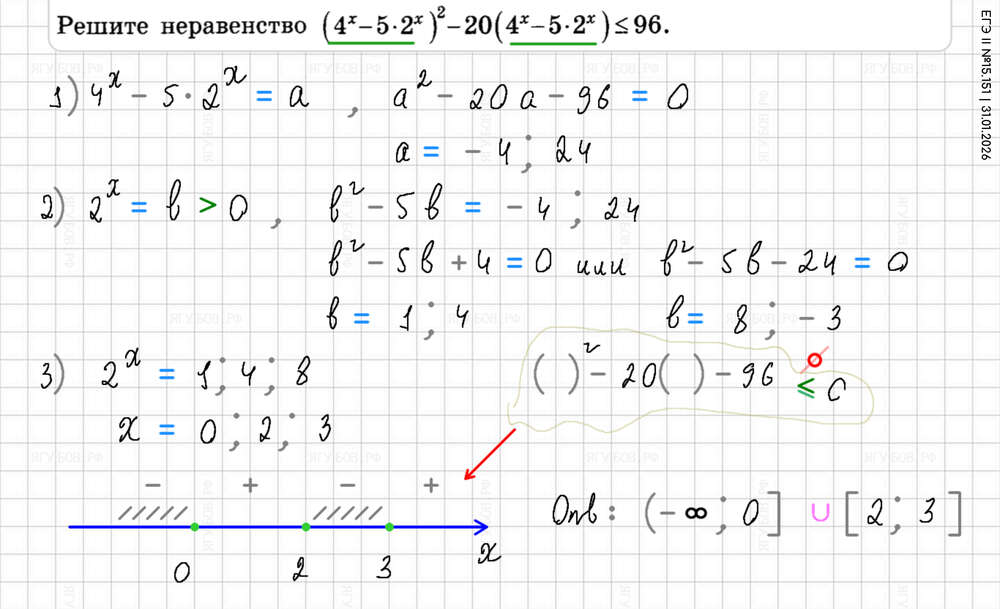 Решите неравенство (4ˣ–5·2ˣ)²–20(4ˣ–5·2ˣ)≤96.
ЕГЭ II №15.151 | 31.01.2026
1) 4ˣ – 5·2ˣ = a , a² – 20a – 96 = 0
a = – 4 ; 24
2) 2ˣ = b > 0 , b² – 5b = – 4 ; 24
b² – 5b + 4 = 0 или b² – 5b – 24 = 0
b = 1 ; 4 b = 8 ; – 3
3) 2ˣ = 1 ; 4 ; 8 ( )² – 20( ) – 96 ≤ 0
x = 0 ; 2 ; 3
– + – +
0 2 3 x
Отв : (– ∞ ; 0] ∪ [2 ; 3]
ЯГУБОВ.РФ